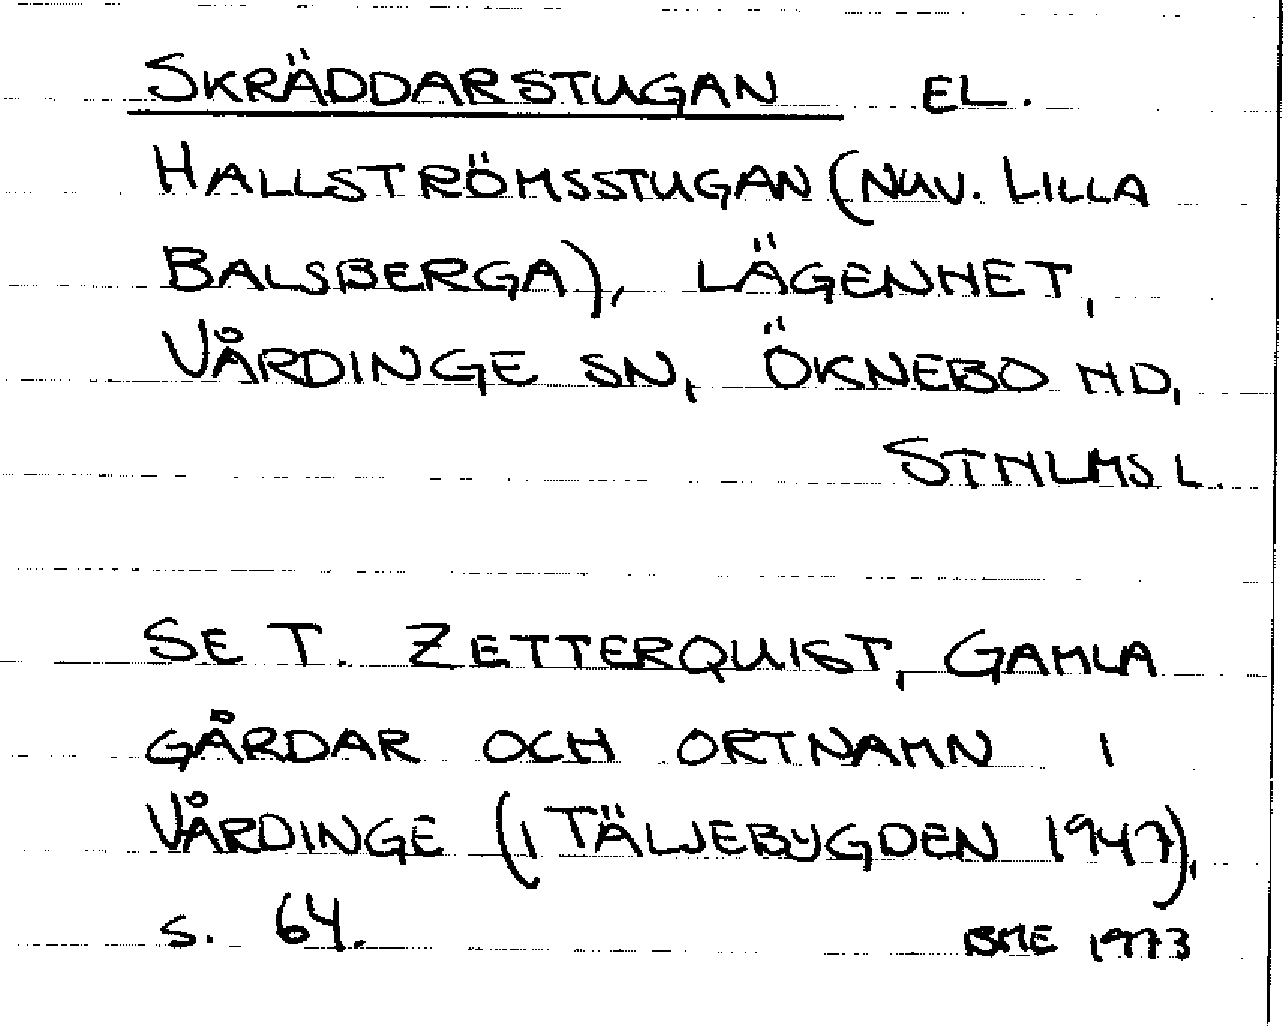 SKRÄDDARSTUGAN EL.
HALLSTRÖMSSTUGAN (NUV. LILLA
BALSBERGA), LÄGENHET,
VÅRDINGE SN, ÖKNEBO HD,
STHLMS L.
SE T. ZETTERQUIST, GAMLA
GÅRDAR OCH ORTNAMN I
VÅRDINGE (I TÄLJEBYGDEN 1947),
S. 64.
BME 1973